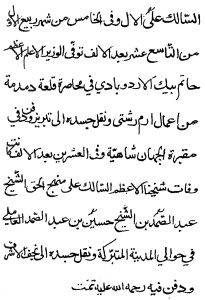 السالك على الال وفى الخامس من شهر ربيع الاول
من التاسع عشر بعد الالف توفى الوزير الاعلم الاعظم
حاتم بيك الاردوبادى فى محاصرة قلعة دمدم
من اعمال ارمى ونقل جسده الى تبريز ودفن فى
مقبرة الجهان شاهية وفى العشرين بعد الالف كانت
وفات شيخنا الاعظم السالك على منهج الحق الشيخ
عبد الصمد بن الشيخ حسين بن عبد الصمد العاملى
فى حوالى المدينة المتبركة ونقل جسده الى نجف الاشرف
ودفن فيه رحمه الله عليه تمت